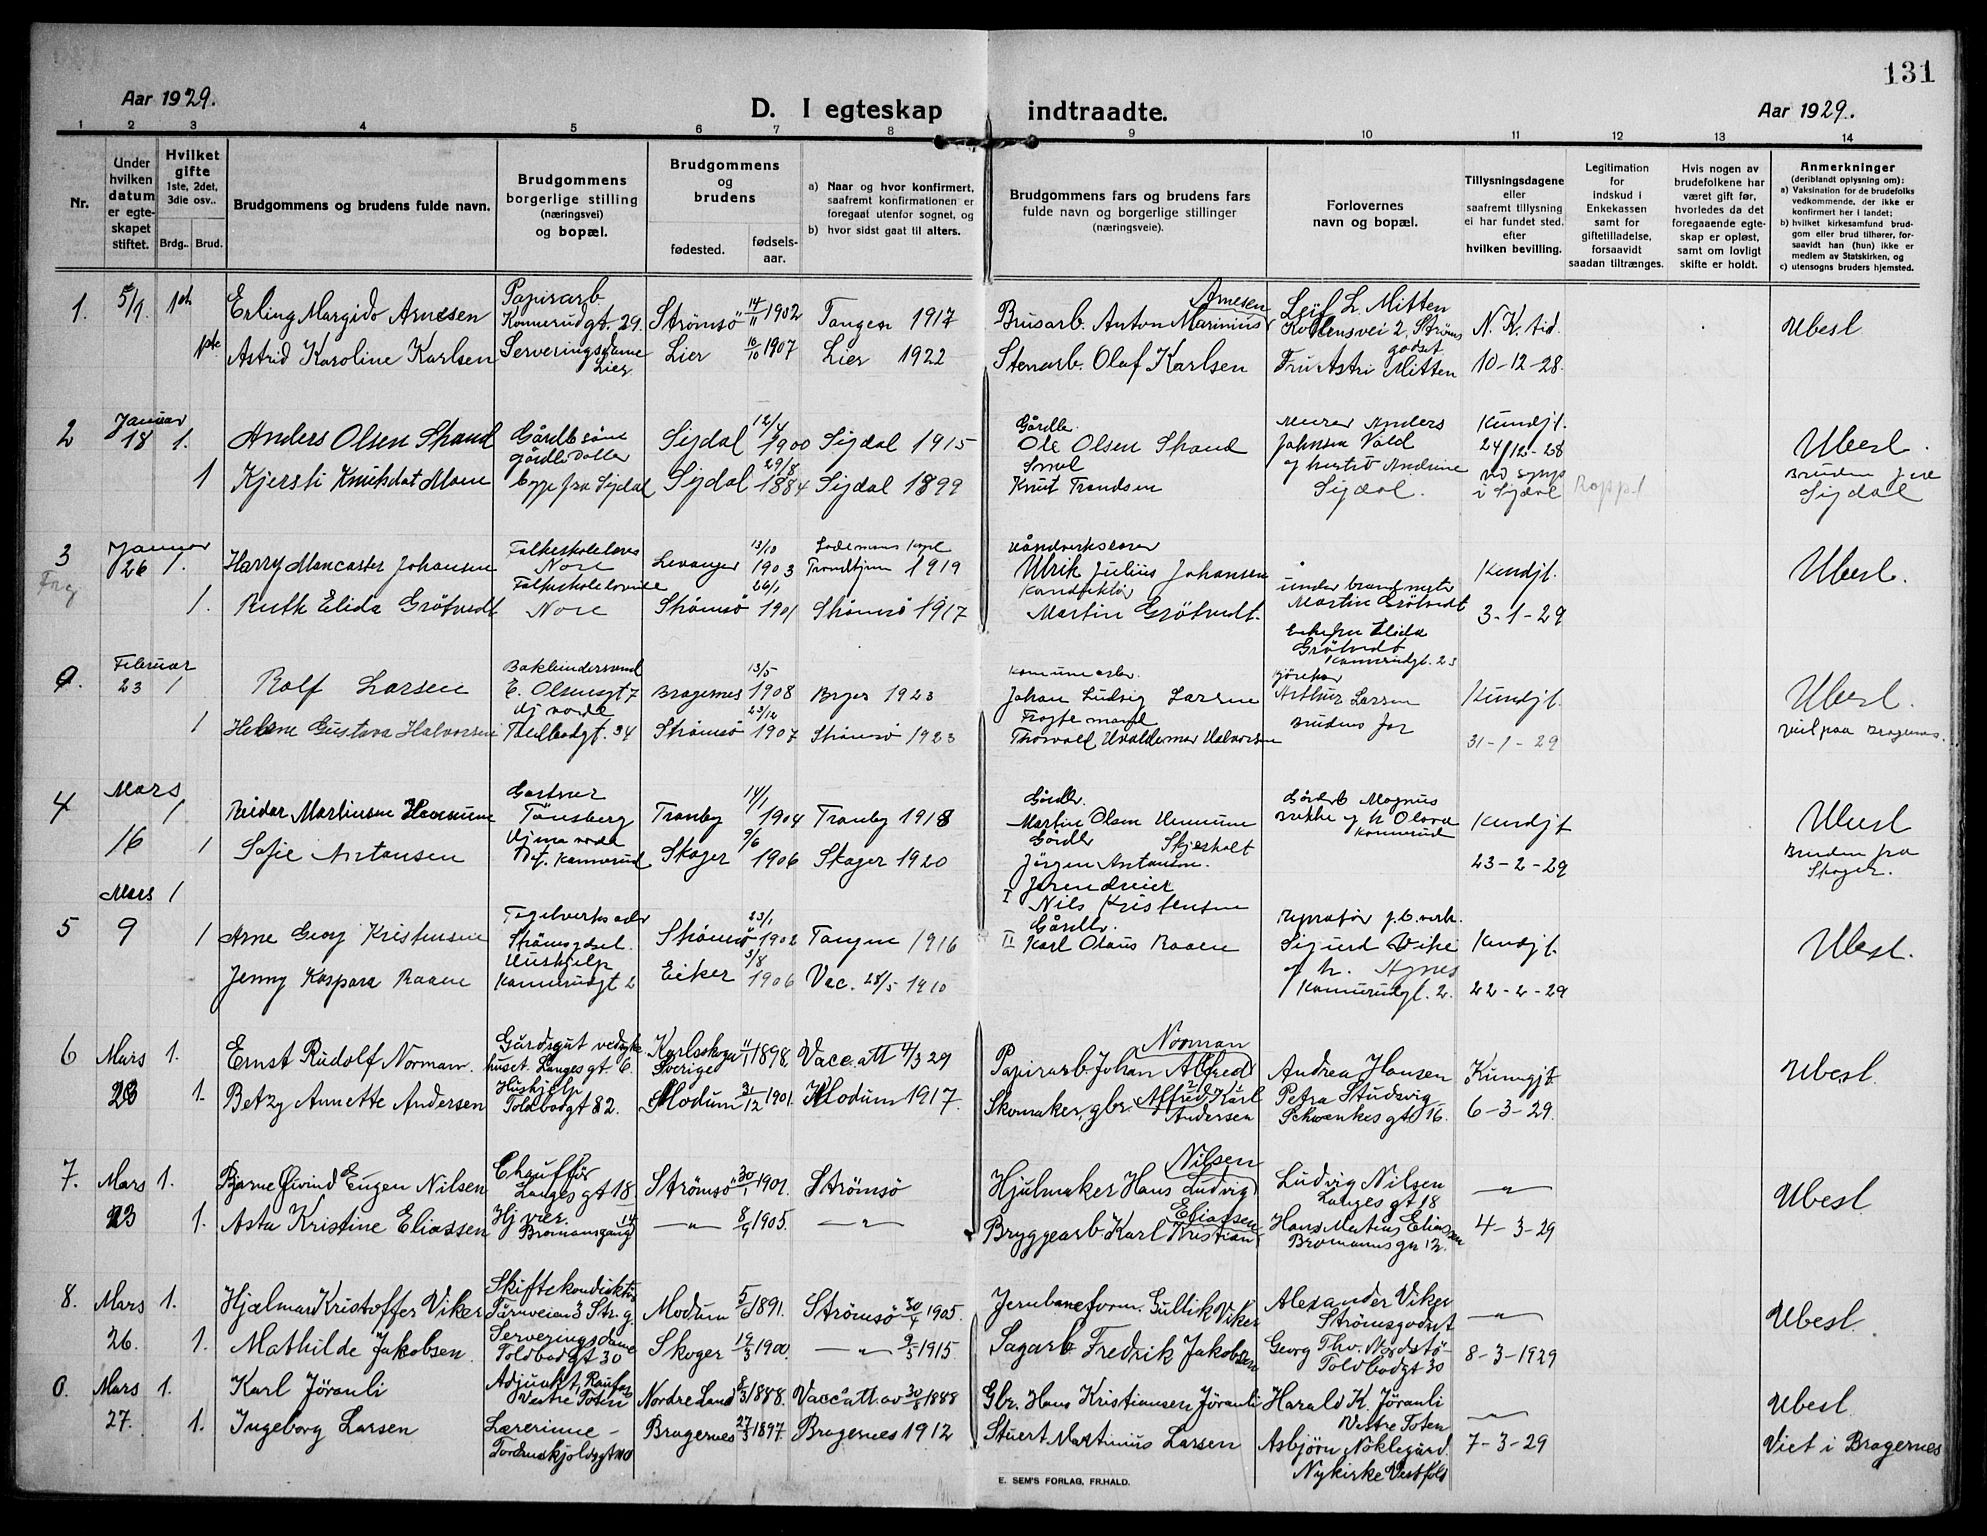 131
Aar 1929.
D. I egteskap indtraadte.
Aar 1929.
1 2 3 4 5 6 7 8 9 10 11 12 13 14
Nr.
Under hvilken datum er egteskapet stiftet.
Hvilket gifte 1ste, 2det, 3die osv..
Brdg.. Brud.
Brudgommens og brudens fulde navn.
Brudgommens borgerlige stilling (næringsvei) og bopæl.
Brudgommens og brudens
fødested.
fødsels-aar.
a) Naar og hvor konfirmert, saafremt konfirmationen er foregaat utenfor sognet, og
b) hvor sidst gaat til alters.
Brudgommens fars og brudens fars fulde navn og borgerlige stillinger (næringsveie).
Forlovernes navn og bopæl.
Tillysningsdagene eller saafremt tillysning ei har fundet sted, efter hvilken bevilling.
Legitimation for indskud i Enkekassen samt for giftetilladelse, forsaavidt saadan tiltrænges.
Hvis nogen av brudefolkene har været gift før, hvorledes da det foregaaende egteskap er opløst, samt om lovligt skifte er holdt.
Anmerkninger (deriblandt oplysning om):
a) Vaksination for de brudefolks vedkommende, der ikke er konfirmert her i landet;
b) hvilket kirkesamfund brudgom eller brud tilhører, forsaavidt han (hun) ikke er medlem av Statskirken, og
c) utensogns bruders hjemsted.
1. 5/1. 1ste Erling Margido Arnesen Papirarb. Konnerudgt. 29. Strømsö 14/11 1902 Tangen 1917 Brusarb. Anton Marinius Arnesen Leif L. Mitten Kollensvei 2 Strømsgodset N. K. tid. Ubesl.
1ste Astrid Karoline Karlsen Serveringsdame Lier Lier 16/10 1907 Lier 1922 Stenarb. Olaf Karlsen Fru Astri Mitten 10-12-28.
2 Januar 18 1. Anders Olsen Skaud Gårdbr.söne Sigdal 12/4 1900 Sigdal 1915 Gårdbr. Ole Olsen Skaud Murer Anders Johnsen Vold Kundgj. 24/12-28 Ubesl.
1 Kjersti Knutsdat Moen Sigdal 29/8 1884 Sigdal 1899 Knut Trondsen og hustru Andrine Sigdal. i Sigdal Bruden fra Sigdal
3 Januar 26 1. Harry Mancaster Johansen Folkeskolelærer Nore Levanger 13/10 1903 Trondhjem 1919 Håndverkslærer Ulrik Julius Johansen Kundgj. Ubesl.
1. Ruth Elida Grötvedt Folkeskolelærerinde Nore Strømsö 26/1 1901 Strømsö 1917 Konduktör Martin Grötvedt. under brandmester Martin Grötvedt Enkefru Elida Grötvedt Konnerudgt. 23 3-1-29
0. Februar 23 1 Rolf Larsen E. Olsensgt 7 Bragernes 13/5 1908 Brges 1923 Komunearb. Johan Ludvig Larsen Arthur Larsen Kundgj. Ubesl.
1 Helene Gustava Halvorsen Hj. værde Tollbodgt. 34 Strømsö 23/12 1907 Strømsö 1923 Thorvald Valdemar Halvorsen brudens far 31-1-29 Viet paa Bragernes.
4 Mars 16 1 Reidar Martinsen Hennum Gartner Tönsberg Tranby 14/1 1904 Tranby 1918 Gårdbr. Martin Olsen Hennum Gårdbr. Magnus Konnerud Kundgj. Ubesl
1 Sofie Antonsen Konnerud Skoger 9/6 1906 Skoger 1920 Gårdbr. Jörgen Antonsen. Skjesholt 23-2-29 Bruden fra Skoger.
5 Mars 9 1 Arne Georg Kristensen Strømsgodset. Strømsö 23/1 1902 Tangen 1916 I Jerndreier Nils Kristensen Sigurd Vike Kundgj. Ubesl.
1 Jenny Kaspara Raaen Hushjelp Konnerudgt 2 Eiker 3/8 1906 Vac. 28/5 1910 II Gårdbr. Karl Olaus Raaen og h. Agnes Konnerudgt. 2. 22-2-29
6 Mars 23 1. Ernst Rudolf Norman. Langesgt. 6. Karlskoga Sverige 11/1 1898 Vacc.att 4/3 29 Papirarb Johan Alfred Norman Andrea Hansen Kunngj. Ubesl.
1. Betzy Annette Andersen Hushjelp Toldbodgt 82. Modum 31/12 1901. Modum 1917. Skomaker, gbr. Alfred Karl Andersen Petra Studsvig Schwenkes gt 16. 6-3-29.
7. Mars 23 1. Bjarne Øivind Eugen Nilsen Chaufför Langes gt 18 Strømsö 30/1 1901. Strømsö Hjulmaker Hans Ludvig Nilsen Ludvig Nilsen Langes gt 18 —"— Ubesl
1. Asta Kristine Eliassen Hj. vær. Bromansgang 12 —"— 8/9 1905. —"— Bryggearb. Karl Kristian Eliassen Hans Matius Eliassen Bromanns gn 12. 4-3-29
8. Mars 26. 1. Hjalmar Kristoffer Viker Skiftekonduktör Tårnveien 3 Str. g. Modum 5/6 1891. Strømsö 30/4 1905. Jernbaneform. Gullik Viker Alexander Viker Strømsgodset —"— Ubesl.
1. Mathilde Jakobsen. Serveringsdame Toldbodgt 30 Skoger 19/3 1900. —"— 9/5 1915. Sagarb Fredrik Jakobsen Georg Thv. Nordstö Toldbodgt 30 8-3-1929
0. Mars 27. 1. Karl Jöranli Adjunkt, Raufoss Vestre Toten Nordre Land 8/3 1888 Vacc.att. av 30/8 1888 Gbr. Hans Kristiansen Jöranli Harald K. Jöranli Vestre Toten —"— Ubesl.
1. Ingeborg Larsen Lærerinne - Tordenskjoldsgt 110 Bragernes 27/3 1897. Bragernes 1912 Stuert Martinius Larsen Asbjørn Noklegård. Nykirke Vestfold 7-3-29 Viet i Bragernes
E. SEM'S FORLAG, FR.HALD.